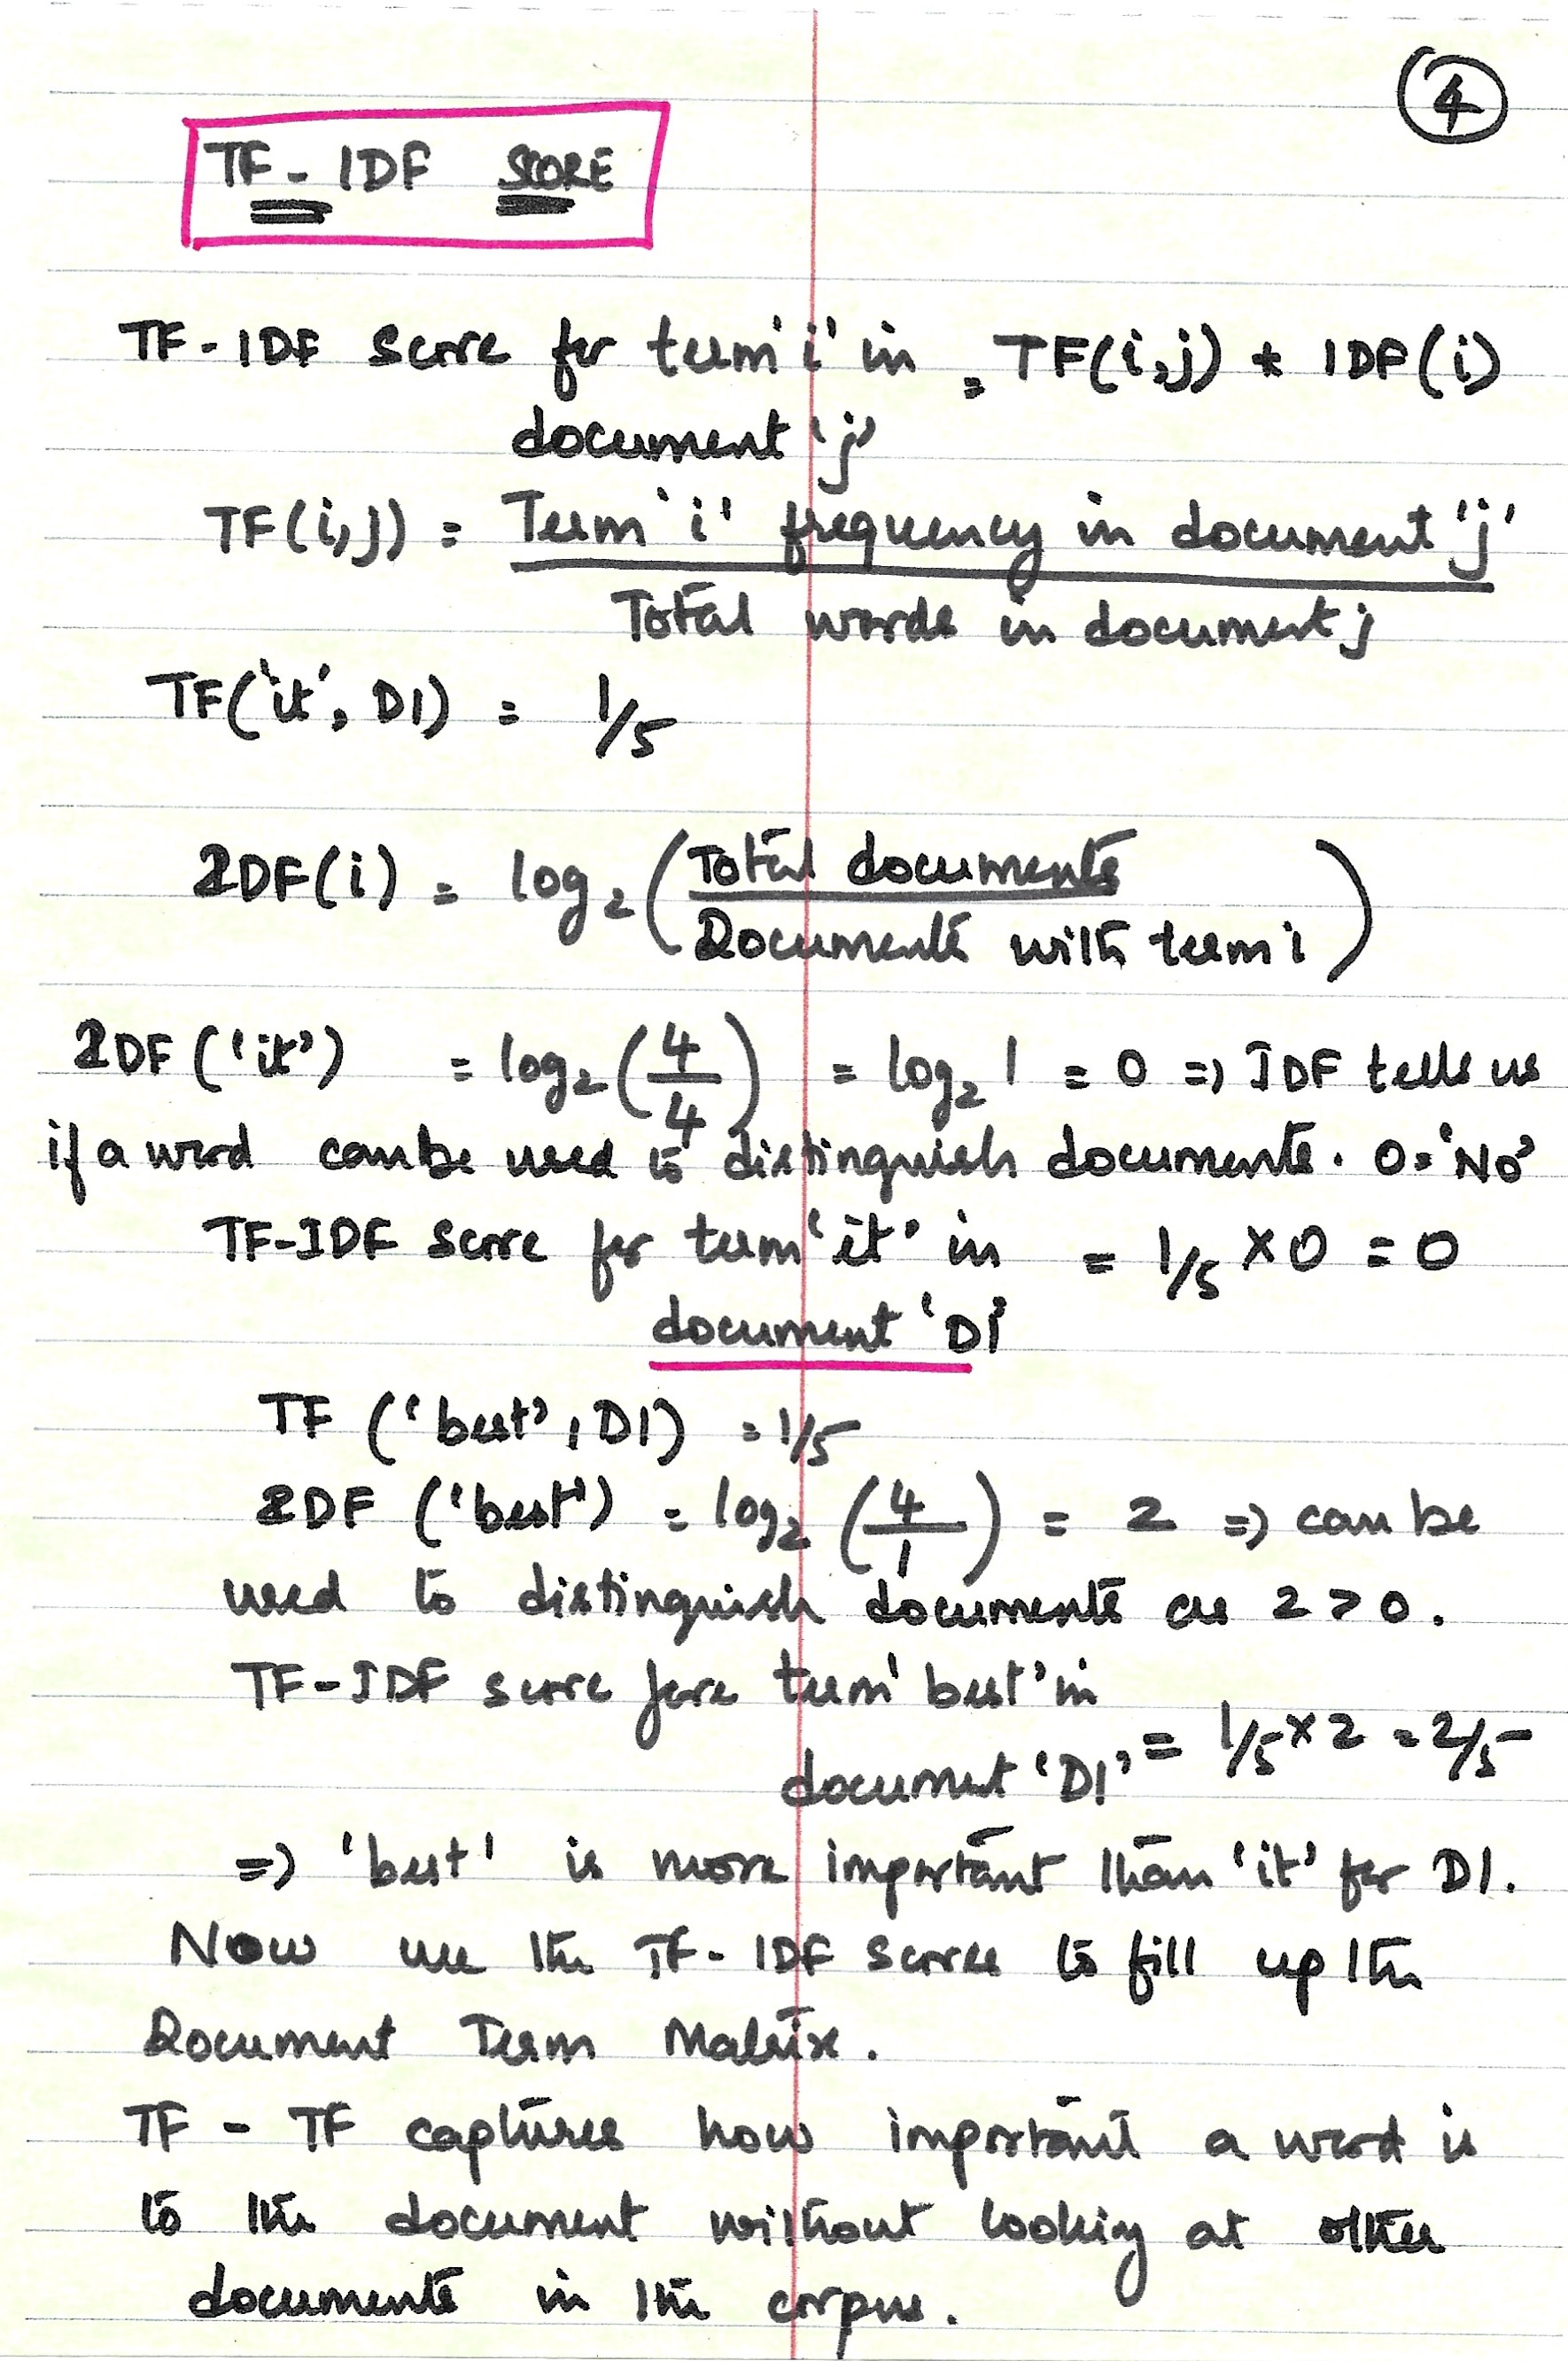 4
TF-IDF SCORE
TF-IDF Score for term 'i' in = TF(i,j) * IDF(i)
document 'j'
TF(i,j) = Term 'i' frequency in document 'j'
Total words in document j
TF('it', D1) = 1/5
IDF(i) = log₂ (Total documents
Documents with term i)
IDF ('it') = log₂ (4/4) = log₂ 1 = 0 => IDF tells us
if a word can be used to distinguish documents. 0 = 'No'
TF-IDF Score for term 'it' in = 1/5 X 0 = 0
document 'D1'
TF ('best', D1) = 1/5
IDF ('best') = log₂ (4/1) = 2 => can be
used to distinguish documents as 2 > 0.
TF-IDF score fore term 'best' in
documet 'D1' = 1/5 x 2 = 2/5
=> 'best' is more important than 'it' for D1.
Now use the TF-IDF Scores to fill up the
Document Term Matrix.
TF - TF captures how important a word is
to the document without looking at other
documents in the corpus.